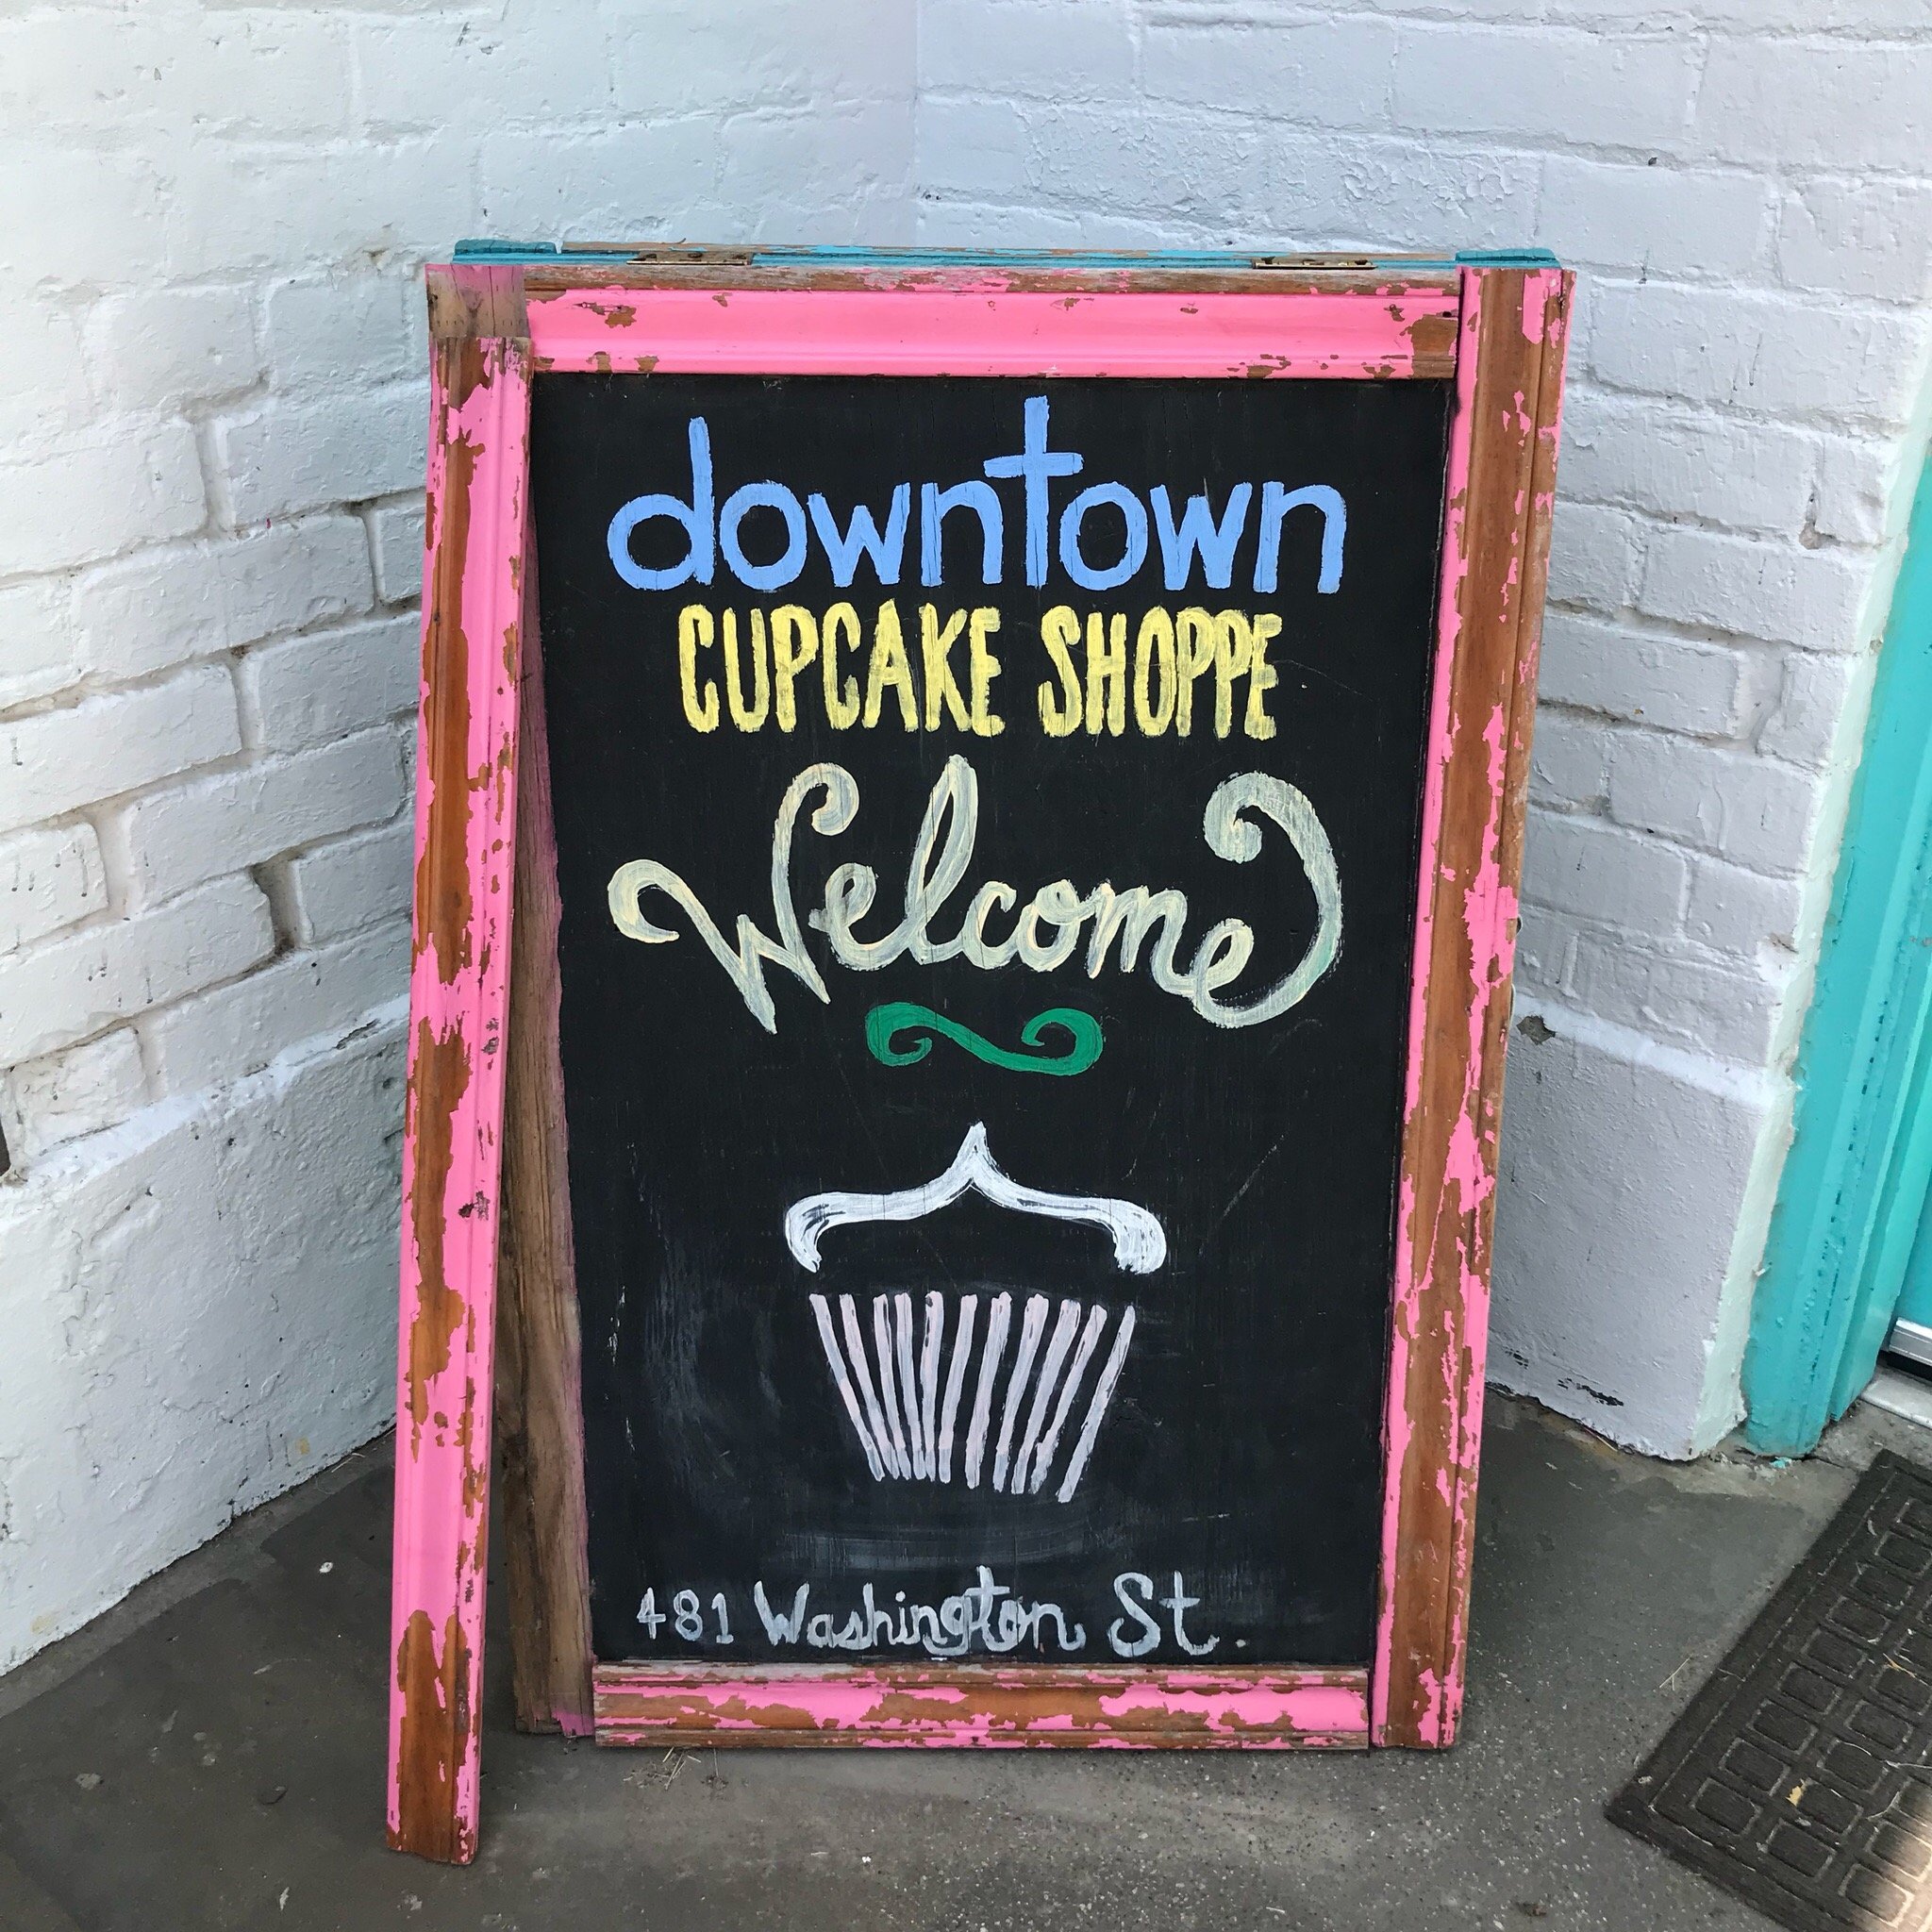 downtown
CUPCAKE SHOPPE
Welcome
481 Washington St.